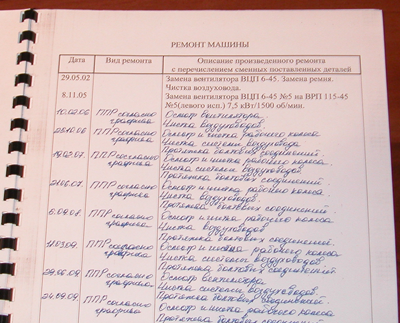 РЕМОНТ МАШИНЫ
Дата Вид ремонта Описание произведенного ремонта
с перечислением сменных поставленных деталей
29.05.02 Замена вентилятора ВЦП 6-45. Замена ремня.
Чистка воздуховода.
8.11.05 Замена вентилятора ВЦП 6-45 №5 на ВРП 115-45
№5(левого исп.) 7,5 кВт/1500 об/мин.
ППР согласно Осмотр вентилятора.
графика Чистка воздуховодов.
ППР согласно Осмотр и чистка рабочего колеса
графика Чистка системы воздуховода
Протяжка болтовых соединений.
19.02.07. ППР согласно Осмотр и чистка рабочего колеса.
графика Чистка воздуховодов.
Протяжка болтовых соединений.
21.06.07. ППР согласно Осмотр и чистка рабочего колеса.
графика Чистка воздуховодов.
Протяжка болтовых соединений.
6.09.07. ППР согласно Осмотр и чистка рабочего колеса
графика Чистка воздуховодов.
Протяжка болтовых соединений.
ППР согласно Осмотр и чистка рабочего колеса
графика Чистка системы воздуховодов.
Протяжка болтовых соединений.
ППР согласно Осмотр вентилятора.
графика Чистка системы воздуховодов.
Протяжка болтовых соединений
24.09.08. ППР согласно Осмотр и чистка рабочего колеса
графика Чистка воздуховодов.
Протяжка болтовых